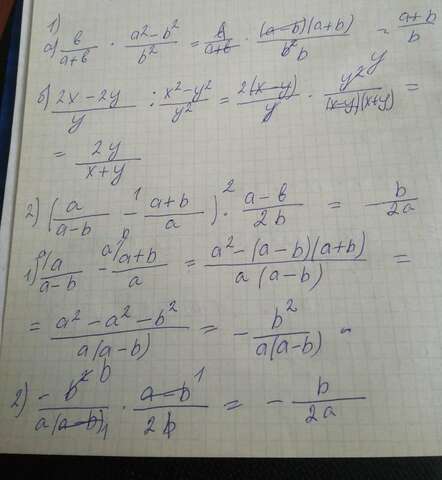 1)
а) в/(a+в) · (a²-b²)/b² = в/(a+в) · ((a-b)(a+b))/(b²b) = (a+b)/b
б) (2x-2y)/y : (x²-y²)/y² = (2(x-y))/y · (y² y)/((x-y)(x+y)) =
= 2y/(x+y)
2) (a/(a-b) -¹ (a+b)/a) ·² (a-в)/(2b) = - b/(2a)
1) a/(a-b) - (a+b)/a = (a²-(a-b)(a+b))/(a(a-b)) =
= (a²-a²-b²)/(a(a-b)) = - b²/(a(a-b))
2) (-b² b)/(a(a-b)1) · (a-b 1)/(2b) = - b/(2a)